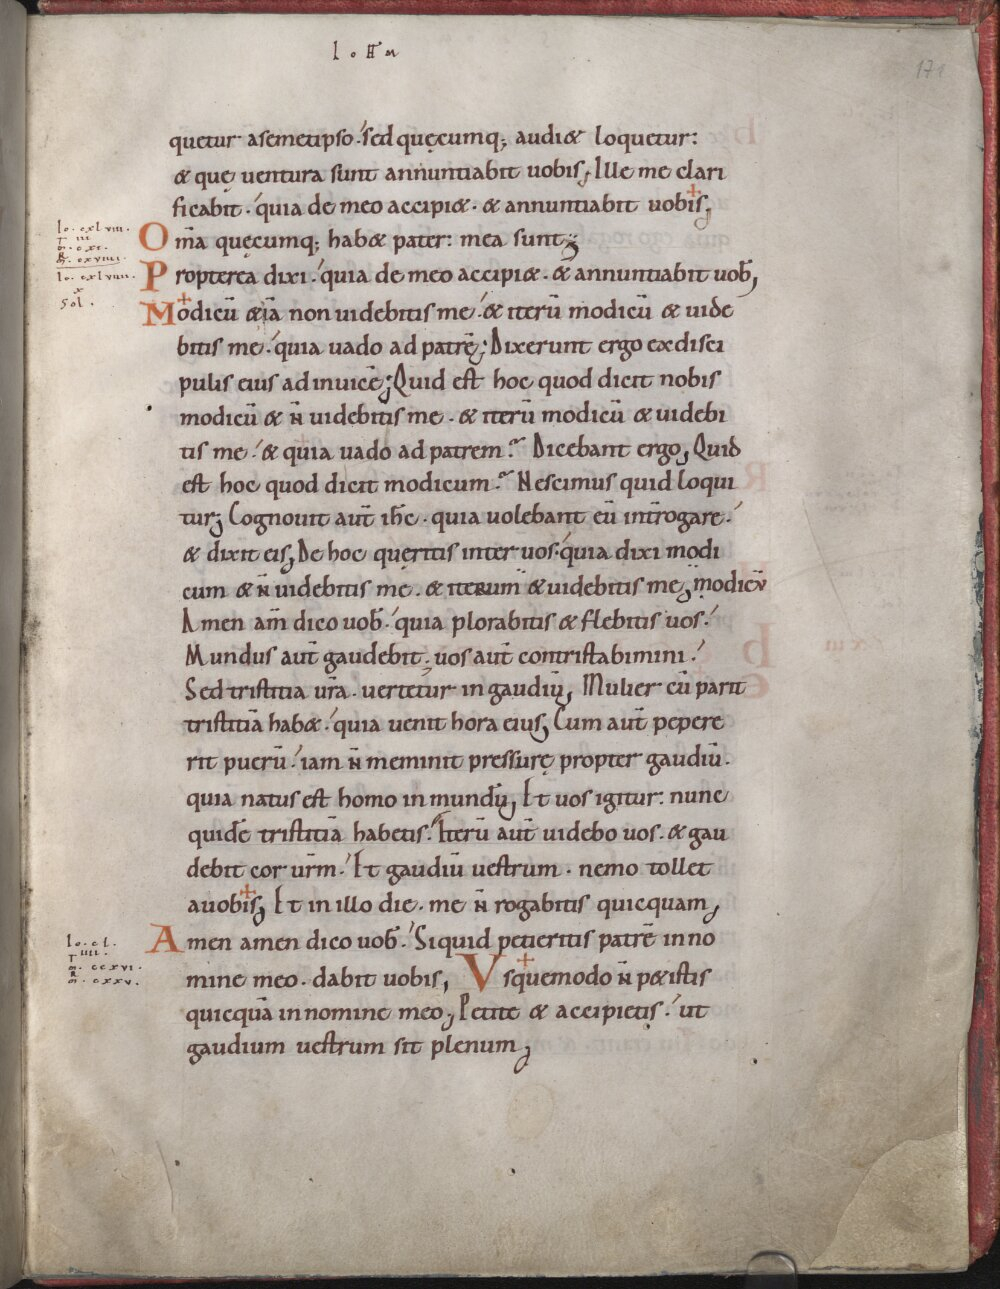 IOHAN
171
quetur asemetipso. sed quęcumq; audi& loquetur:
& quę uentura sunt annuntiabit uobis; Ille me clari
ficabit. quia de meo accipi&. & annuntiabit uobis;
lo. cxlviii.
iii
m. cxi.
cxviiii.
Om̄a quęcumq; hab& pater: mea sunt;
lo. cxlviiii.
x
Sol.
Propterea dixi. quia de meo accipi&. & annuntiabit uob;
Modicū &iā non uidebitis me. & iterū modicū & uide
bitis me. quia uado ad patrē; Dixerunt ergo ex disci
pulis eius ad inuicē; Quid est hoc quod dicit nobis
modicū & n̄ uidebitis me. & iterū modicū & uidebi
tis me. & quia uado ad patrem? Dicebant ergo; Quid
est hoc quod dicit modicum? Nescimus quid loqui
tur; Cognouit aut̄ ih̄c. quia uolebant eū int̄rogare.
& dixit eis; De hoc quęritis inter uos. quia dixi modi
cum & n̄ uidebitis me. & iterum modicū & uidebitis me;
Amen am̄ dico uob̄. quia plorabitis & flebitis uos.
Mundus aut̄ gaudebit. uos aut̄ contristabimini.
Sed tristitia ur̄a. uertetur in gaudiū; Mulier cū parit
tristitiā hab&. quia uenit hora eius; Cum aut̄ pepere
rit puerū. iam n̄ meminit pressurę propter gaudiū.
quia natus est homo in mundū; Et uos igitur. nunc
quidē tristitiā habetis. Iterū aut̄ uidebo uos. & gau
debit cor ur̄m. Et gaudiū uestrum. nemo tollet
auobis; Et in illo die. me n̄ rogabitis quicquam;
lo. cl.
iiii.
m. ccxvi.
m. cxxv.
Amen amen dico uob̄. Siquid petieritis patrē in no
mine meo. dabit uobis; Vsquemodo n̄ p&istis
quicquā in nomine meo; Petite & accipietis. ut
gaudium uestrum sit plenum;